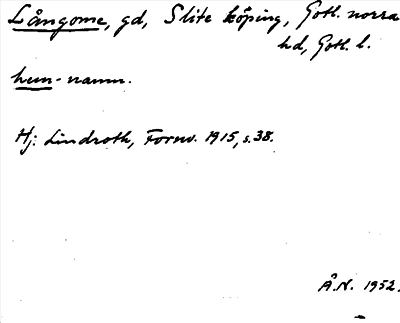 Långome, gd, Slite köping, Gotl. norra
hd, Gotl. l.
hem-namn.
Hj. Lindroth, Fornv. 1915, s. 38.
Å.N. 1952.